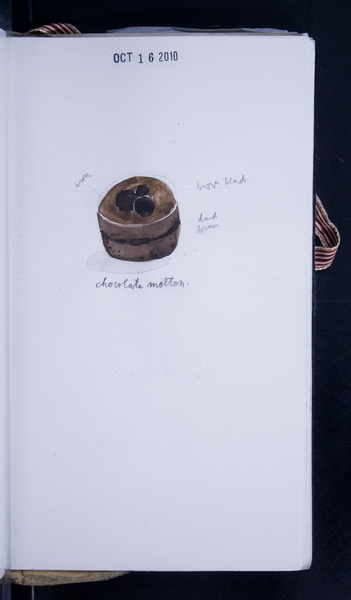 OCT 16 2010
brown blends
dark
brown
chocolate molten.